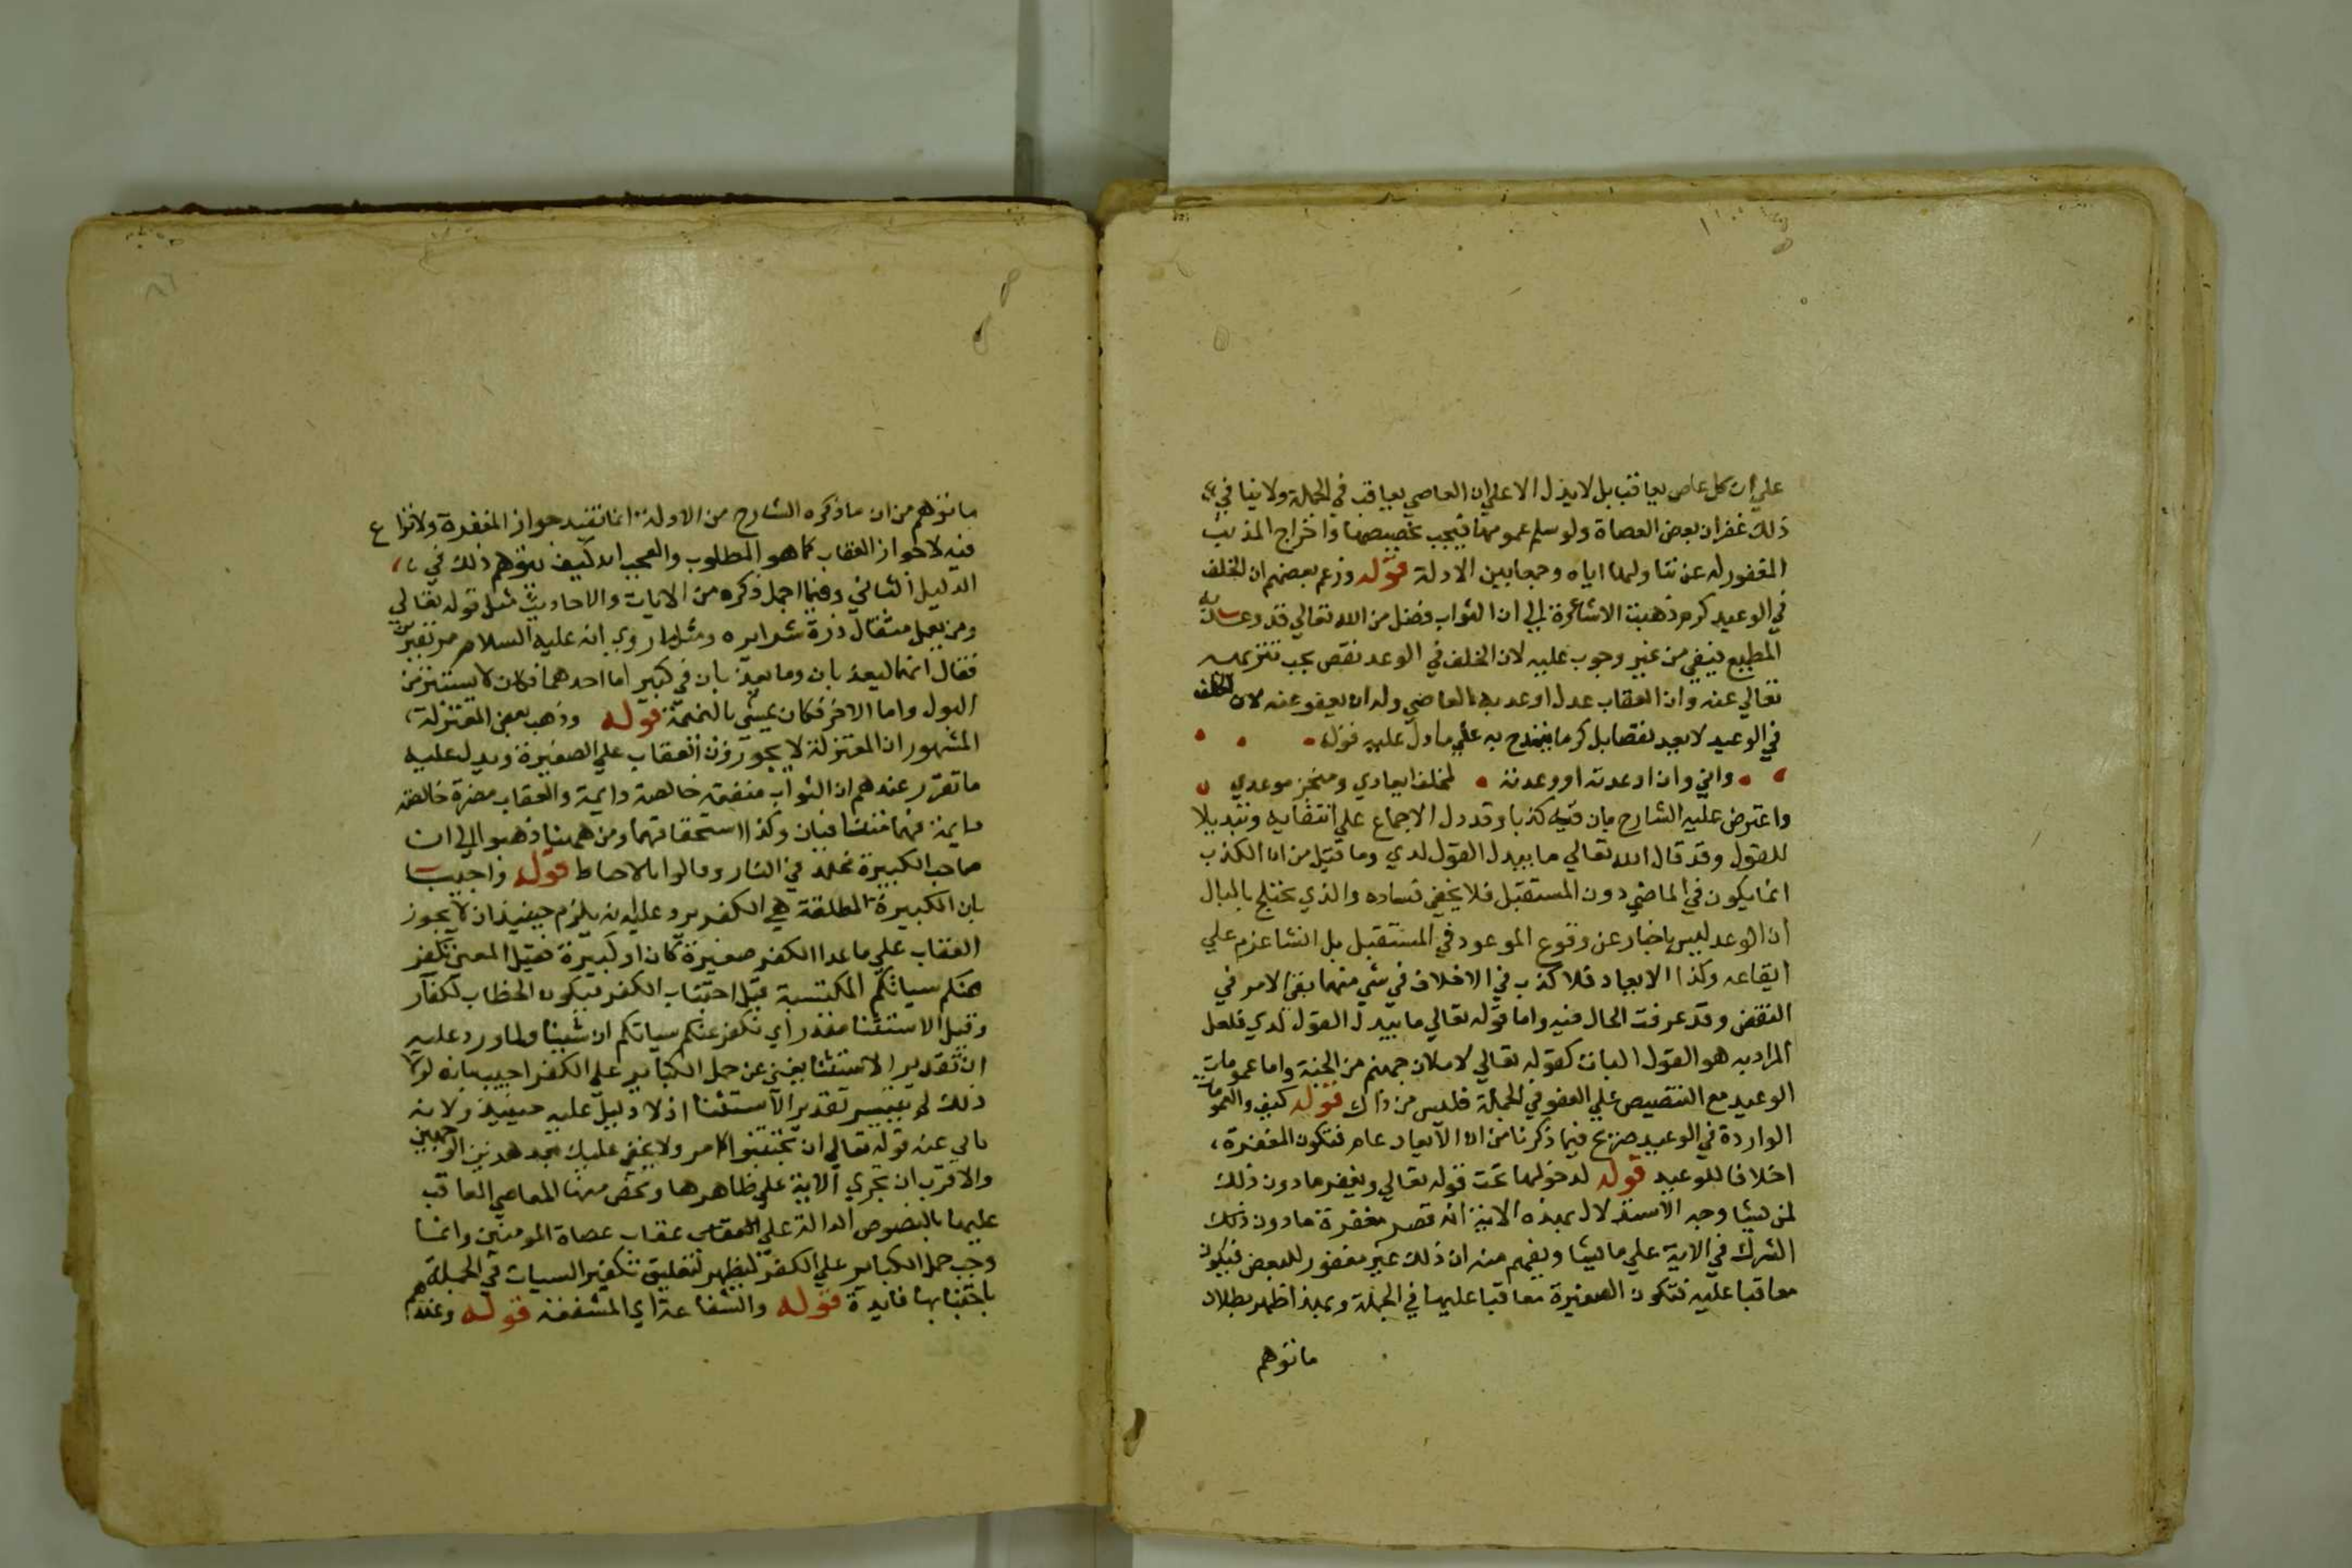 علي ان كل عاص يعاقب بل لا يدل الا علي ان العاصي يعاقب في الجملة ولا ينافي
ذلك غفران بعض العصاة ولو سلم عمومها فيجب تخصيصها واخراج المذنب
المغفور له عن تناولها اياه وجمعا بين الادلة قوله وزعم بعضهم ان الخلف
في الوعيد كرم ذهبت الاشاعرة الي ان الثواب فضل من الله تعالي قد وعد به
المطيع فيفي من غير وجوب عليه لان الخلف في الوعد نقص يجب تنزيهه
تعالي عنه وان العقاب عدل اوعد به العاصي وله ان يعفو عنه لان الخلف
في الوعيد لا يعد نقصا بل كرما يتمدح به علي ما دل عليه قوله
واني وان اوعدته او وعدته لمخلف ايعادي ومنجز موعدي
واعترض عليه الشارح بان فيه كذبا وقد دل الاجماع علي انتفايه وتبديلا
للقول وقد قال الله تعالي ما يبدل القول لدي وما قيل من ان الكذب
انما يكون في الماضي دون المستقبل فلا يخفي فساده والذي يختلج بالبال
ان الوعد ليس باخبار عن وقوع الموعود في المستقبل بل انشا عزم علي
ايقاعه وكذا الايعاد فلا كذب في الاخلاف في شي منهما بقي الامر في
النقض وقد عرفت الحال فيه واما قوله تعالي ما يبدل القول لدي فلعل
المراد به هو القول البات كقوله تعالي لاملان جهنم من الجنة واما عمومات
الوعيد مع التنصيص علي العفو في الجملة فليس من ذاك قوله كيف والعمومات
الواردة في الوعيد صريح فيما ذكرنا من ان الايعاد عام فتكون المغفرة
اخلافا للوعيد قوله لدخولها تحت قوله تعالي ويغفر ما دون ذلك
لمن يشا وجه الاستدلال بهذه الاية انه قصر مغفرة ما دون ذلك
الشرك في الاية علي ما يشا ويفهم منه ان ذلك غير مغفور للبعض فيكون
معاقبا عليه فتكون الصغيرة معاقبا عليها في الجملة وبهذا ظهر بطلان
ما توهم
ما توهم من ان ما ذكره الشارح من الادلة انما تفيد جواز المغفرة ولا نزاع
فيه لا جواز العقاب كما هو المطلوب والعجب انه كيف يتوهم ذلك في
الدليل الثاني وفيما اجمل ذكره من الايات والاحاديث مثل قوله تعالي
ومن يعمل مثقال ذرة شرا يره ومثل ما روي انه عليه السلام مر بقبرين
فقال انهما ليعذبان وما يعذبان في كبير اما احدهما فكان لا يستنزه من
البول واما الاخر فكان يمشي بالنميمة قوله وذهب بعض المعتزلة
المشهور ان المعتزلة لا يجوزون العقاب علي الصغيرة ويدل عليه
ما تقرر عندهم ان الثواب منفعة خالصة دايمة والعقاب مضرة خالصة
دايمة فهما متنافيان وكذا استحقاقهما ومن ههنا ذهبوا الي ان
صاحب الكبيرة مخلد في النار وقالوا بالاحباط قوله واجيب
بان الكبيرة المطلقة هي الكفر يرد عليه انه يلزم حينيذ ان لا يجوز
العقاب علي ما عدا الكفر صغيرة كان او كبيرة فقيل المعني نكفر
عنكم سياتكم المكتسبة قبل اجتناب الكفر فيكون الخطاب للكفار
وقيل الاستثنا مقدر اي نكفر عنكم سياتكم ان شينا ولما ورد عليه
ان تقدير الاستثنا يغني عن حمل الكباير علي الكفر اجيب بانه لولا
ذلك لم يتيسر تقدير الاستثنا اذ لا دليل عليه حينيذ ولانه
يابي عنه قوله تعالي ان تجتنبوا الامر ولا يخفي عليك بعد هذين الوجهين
والاقرب ان تجري الاية علي ظاهرها ويخص منها المعاصي المعاقب
عليها بالنصوص الدالة علي عقاب عصاة المومنين وانما
وجب حمل الكباير علي الكفر ليظهر لتعليق تكفير السيات في الجملة
باجتنابها فايدة قوله والشفاعة اي المشفعة قوله وعندهم